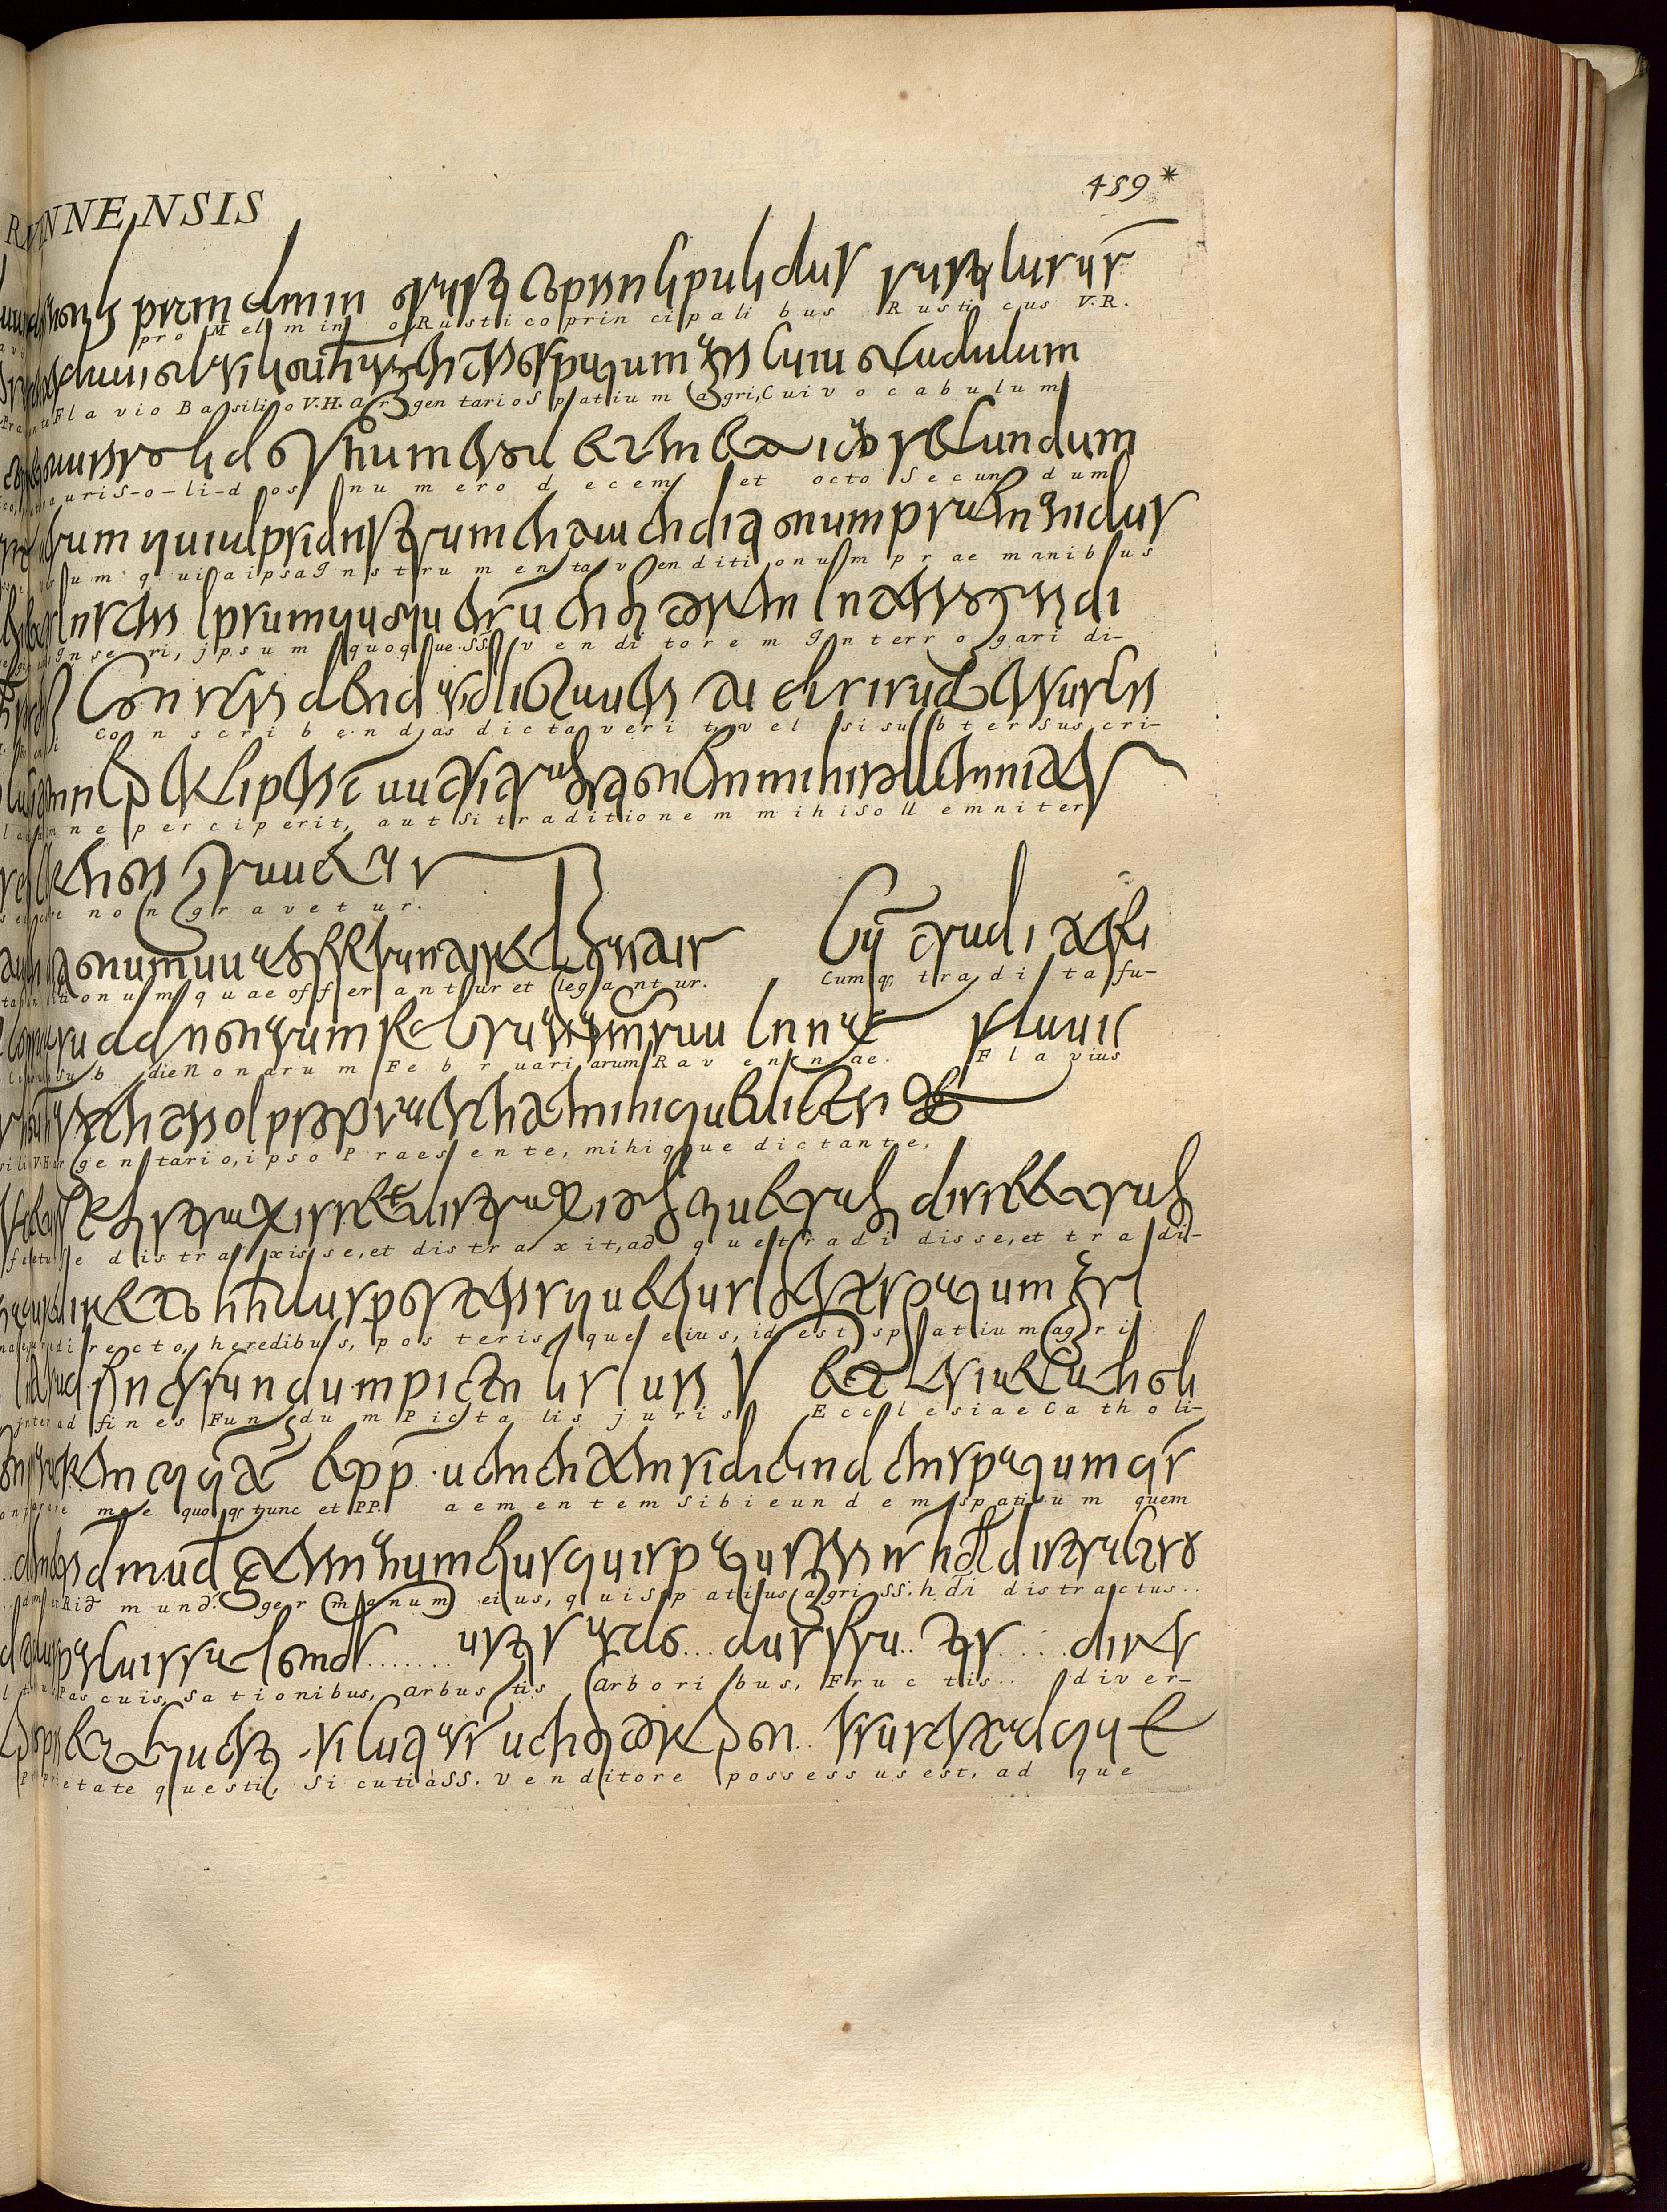 RAVENNENSIS
459*
pro Melmino Rustico principalibus Rusticus V.R.
Flavio Basilio V.H. Argentario Spatium agri, Cui vocabulum
auri S-o-li-d os numero decem et octo Secun dum
um quia ipsa Jnstrumenta venditionum prae manibus
Jnseri, jpsum quoque SS. venditorem Jnterrogari di-
Conscribendas dictaverit vel si subter suscri-
ne perciperit, aut Si traditionem mihi Sollemniter
non gravetur.
onum quae offerantur et legantur. Cumq; tradita fu-
sub die Nonarum Februariarum Ravennae. Flavius
gentario, ipso Praesente, mihique dictante,
se distraxisse, et distraxit, ad que tradidisse, et tradi-
directo, heredibus, posterisque eius, id est spatium agri
ad fines Fundum Pictalis juris Ecclesiae Catholi-
me quoq; tunc et PP. aementem Sibi eundem spatium quem
Rid mund. germanum eius, qui Spatius agri SS. h.di distractus..
Pascuis, Sationibus, arbustis Arboribus, Fructis... diver-
Proprietate questi, Sicuti à SS. venditore possessus est, ad que